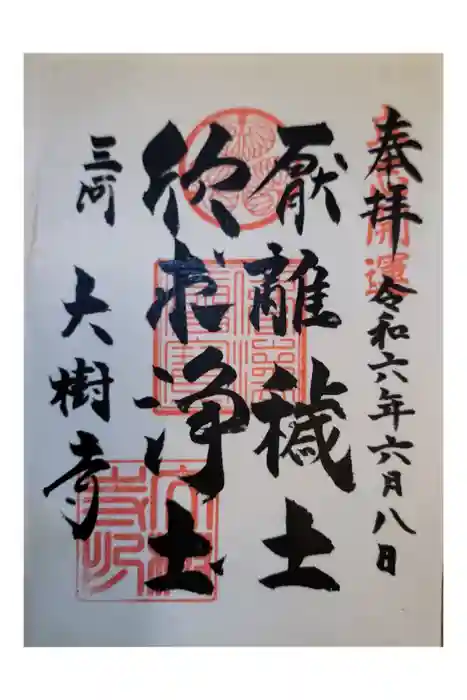 奉拝 令和六年六月八日
厭離穢土
欣求浄土
三河 大樹寺